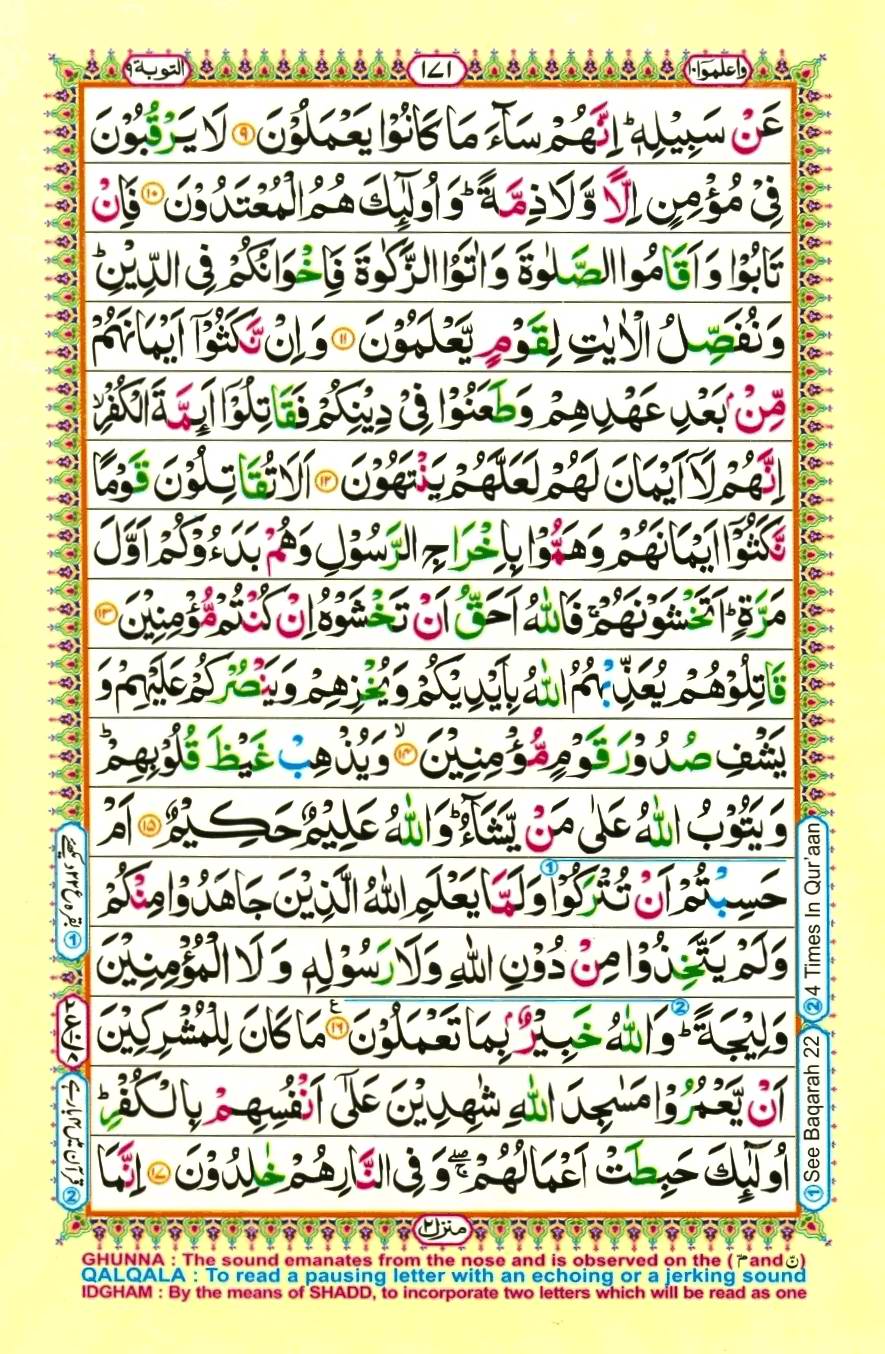 واعلموا ١٠
١٧١
التوبة ٩
عَنْ سَبِيْلِهٖ ؕ اِنَّهُمْ سَآءَ مَا كَانُوْا يَعْمَلُوْنَ ۹ لَا يَرْقُبُوْنَ
فِیْ مُؤْمِنٍ اِلًّا وَّلَا ذِمَّةً ؕ وَ اُولٰٓئِكَ هُمُ الْمُعْتَدُوْنَ ۱۰ فَاِنْ
تَابُوْا وَ اَقَامُوا الصَّلٰوةَ وَ اٰتَوُا الزَّكٰوةَ فَاِخْوَانُكُمْ فِی الدِّيْنِ ؕ
وَ نُفَصِّلُ الْاٰيٰتِ لِقَوْمٍ يَّعْلَمُوْنَ ۱۱ وَ اِنْ نَّكَثُوْۤا اَيْمَانَهُمْ
مِّنْۢ بَعْدِ عَهْدِهِمْ وَ طَعَنُوْا فِیْ دِيْنِكُمْ فَقَاتِلُوْۤا اَىِٕمَّةَ الْكُفْرِ ۙ
اِنَّهُمْ لَاۤ اَيْمَانَ لَهُمْ لَعَلَّهُمْ يَنْتَهُوْنَ ۱۲ اَلَا تُقَاتِلُوْنَ قَوْمًا
نَّكَثُوْۤا اَيْمَانَهُمْ وَ هَمُّوْا بِاِخْرَاجِ الرَّسُوْلِ وَ هُمْ بَدَءُوْكُمْ اَوَّلَ
مَرَّةٍ ؕ اَتَخْشَوْنَهُمْ ۚ فَاللّٰهُ اَحَقُّ اَنْ تَخْشَوْهُ اِنْ كُنْتُمْ مُّؤْمِنِيْنَ ۱۳
قَاتِلُوْهُمْ يُعَذِّبْهُمُ اللّٰهُ بِاَيْدِيْكُمْ وَ يُخْزِهِمْ وَ يَنْصُرْكُمْ عَلَيْهِمْ وَ
يَشْفِ صُدُوْرَ قَوْمٍ مُّؤْمِنِيْنَ ۙ ۱۴ وَ يُذْهِبْ غَيْظَ قُلُوْبِهِمْ ؕ
وَ يَتُوْبُ اللّٰهُ عَلٰى مَنْ يَّشَآءُ ؕ وَ اللّٰهُ عَلِيْمٌ حَكِيْمٌ ۱۵ اَمْ
حَسِبْتُمْ اَنْ تُتْرَكُوْا وَ لَمَّا يَعْلَمِ اللّٰهُ الَّذِيْنَ جَاهَدُوْا مِنْكُمْ
وَ لَمْ يَتَّخِذُوْا مِنْ دُوْنِ اللّٰهِ وَ لَا رَسُوْلِهٖ وَ لَا الْمُؤْمِنِيْنَ
وَلِيْجَةً ؕ وَ اللّٰهُ خَبِيْرٌۢ بِمَا تَعْمَلُوْنَ ۱۶ ع مَا كَانَ لِلْمُشْرِكِيْنَ
اَنْ يَّعْمُرُوْا مَسٰجِدَ اللّٰهِ شٰهِدِيْنَ عَلٰۤى اَنْفُسِهِمْ بِالْكُفْرِ ؕ
اُولٰٓئِكَ حَبِطَتْ اَعْمَالُهُمْ ۖۚ وَ فِی النَّارِ هُمْ خٰلِدُوْنَ ۱۷ اِنَّمَا
② 4 Times In Qur'aan
① See Baqarah 22
② قرآن میں ۴ بار ہے
منزل ٢
GHUNNA : The sound emanates from the nose and is observed on the (مّ and نّ)
QALQALA : To read a pausing letter with an echoing or a jerking sound
IDGHAM : By the means of SHADD, to incorporate two letters which will be read as one